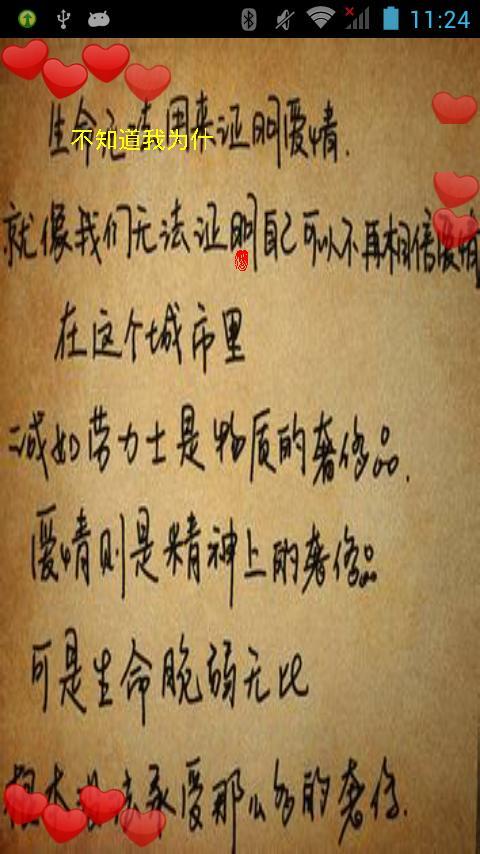 11:24
生命无法用来证明爱情.
不知道我为什
就像我们无法证明自己可以不再相信爱情
在这个城市里
诚如劳力士是物质的奢侈品.
爱情则是精神上的奢侈品
可是生命脆弱无比
根本法承受那么多的奢侈.